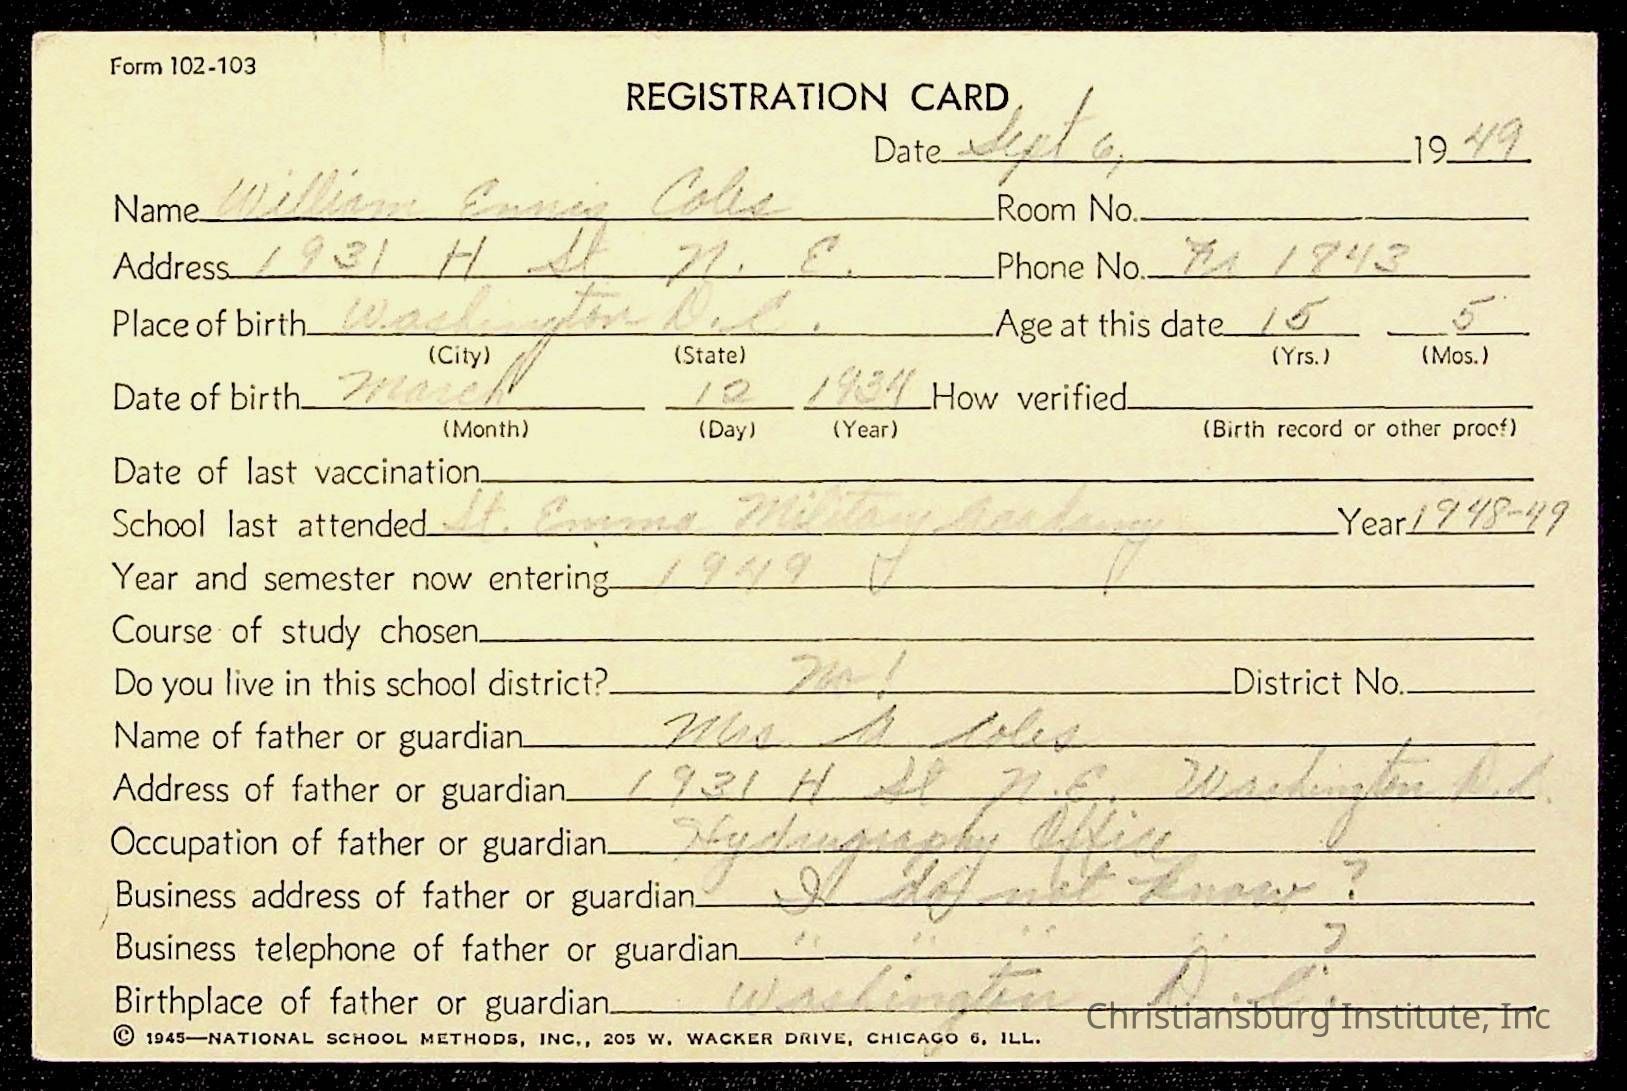 Form 102-103
REGISTRATION CARD
Date Sept 6, 1949
Name William Ennis Coles Room No.
Address 1931 H St N. E. Phone No. 1843
Place of birth Washington D.C. Age at this date 15 5
(City) (State) (Yrs.) (Mos.)
Date of birth March 12 1934 How verified
(Month) (Day) (Year) (Birth record or other proof)
Date of last vaccination
School last attended St. Emma Military Year 1948-49
Year and semester now entering 1949
Course of study chosen
Do you live in this school district? No! District No.
Name of father or guardian Mrs Coles
Address of father or guardian 1931 H St N.E. Washington D.C.
Occupation of father or guardian Hydrography Office
Business address of father or guardian I do not know?
Business telephone of father or guardian " " " " ?
Birthplace of father or guardian Washington D.C.
© 1945—NATIONAL SCHOOL METHODS, INC., 205 W. WACKER DRIVE, CHICAGO 6, ILL.
Christiansburg Institute, Inc